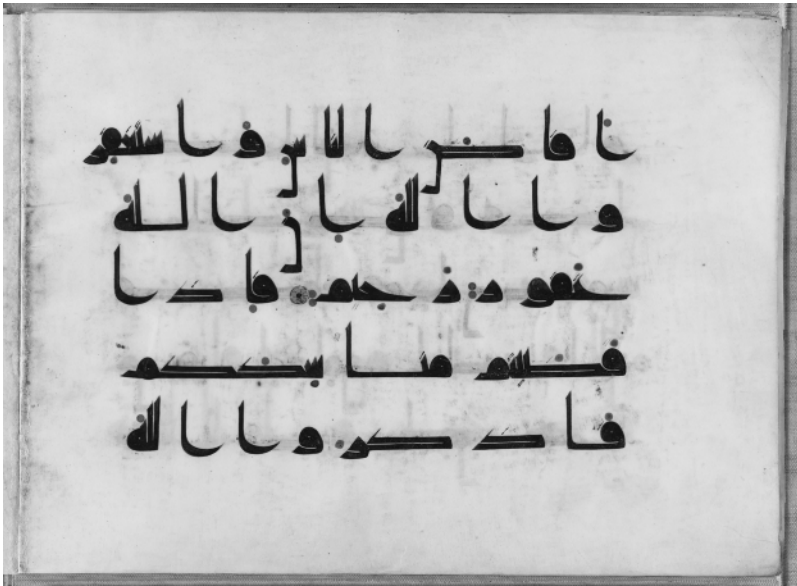 افاض الناس واستغفر
وا الله ان الله
غفور رحيم فاذا
قضيتم مناسككم
فاذكروا الله